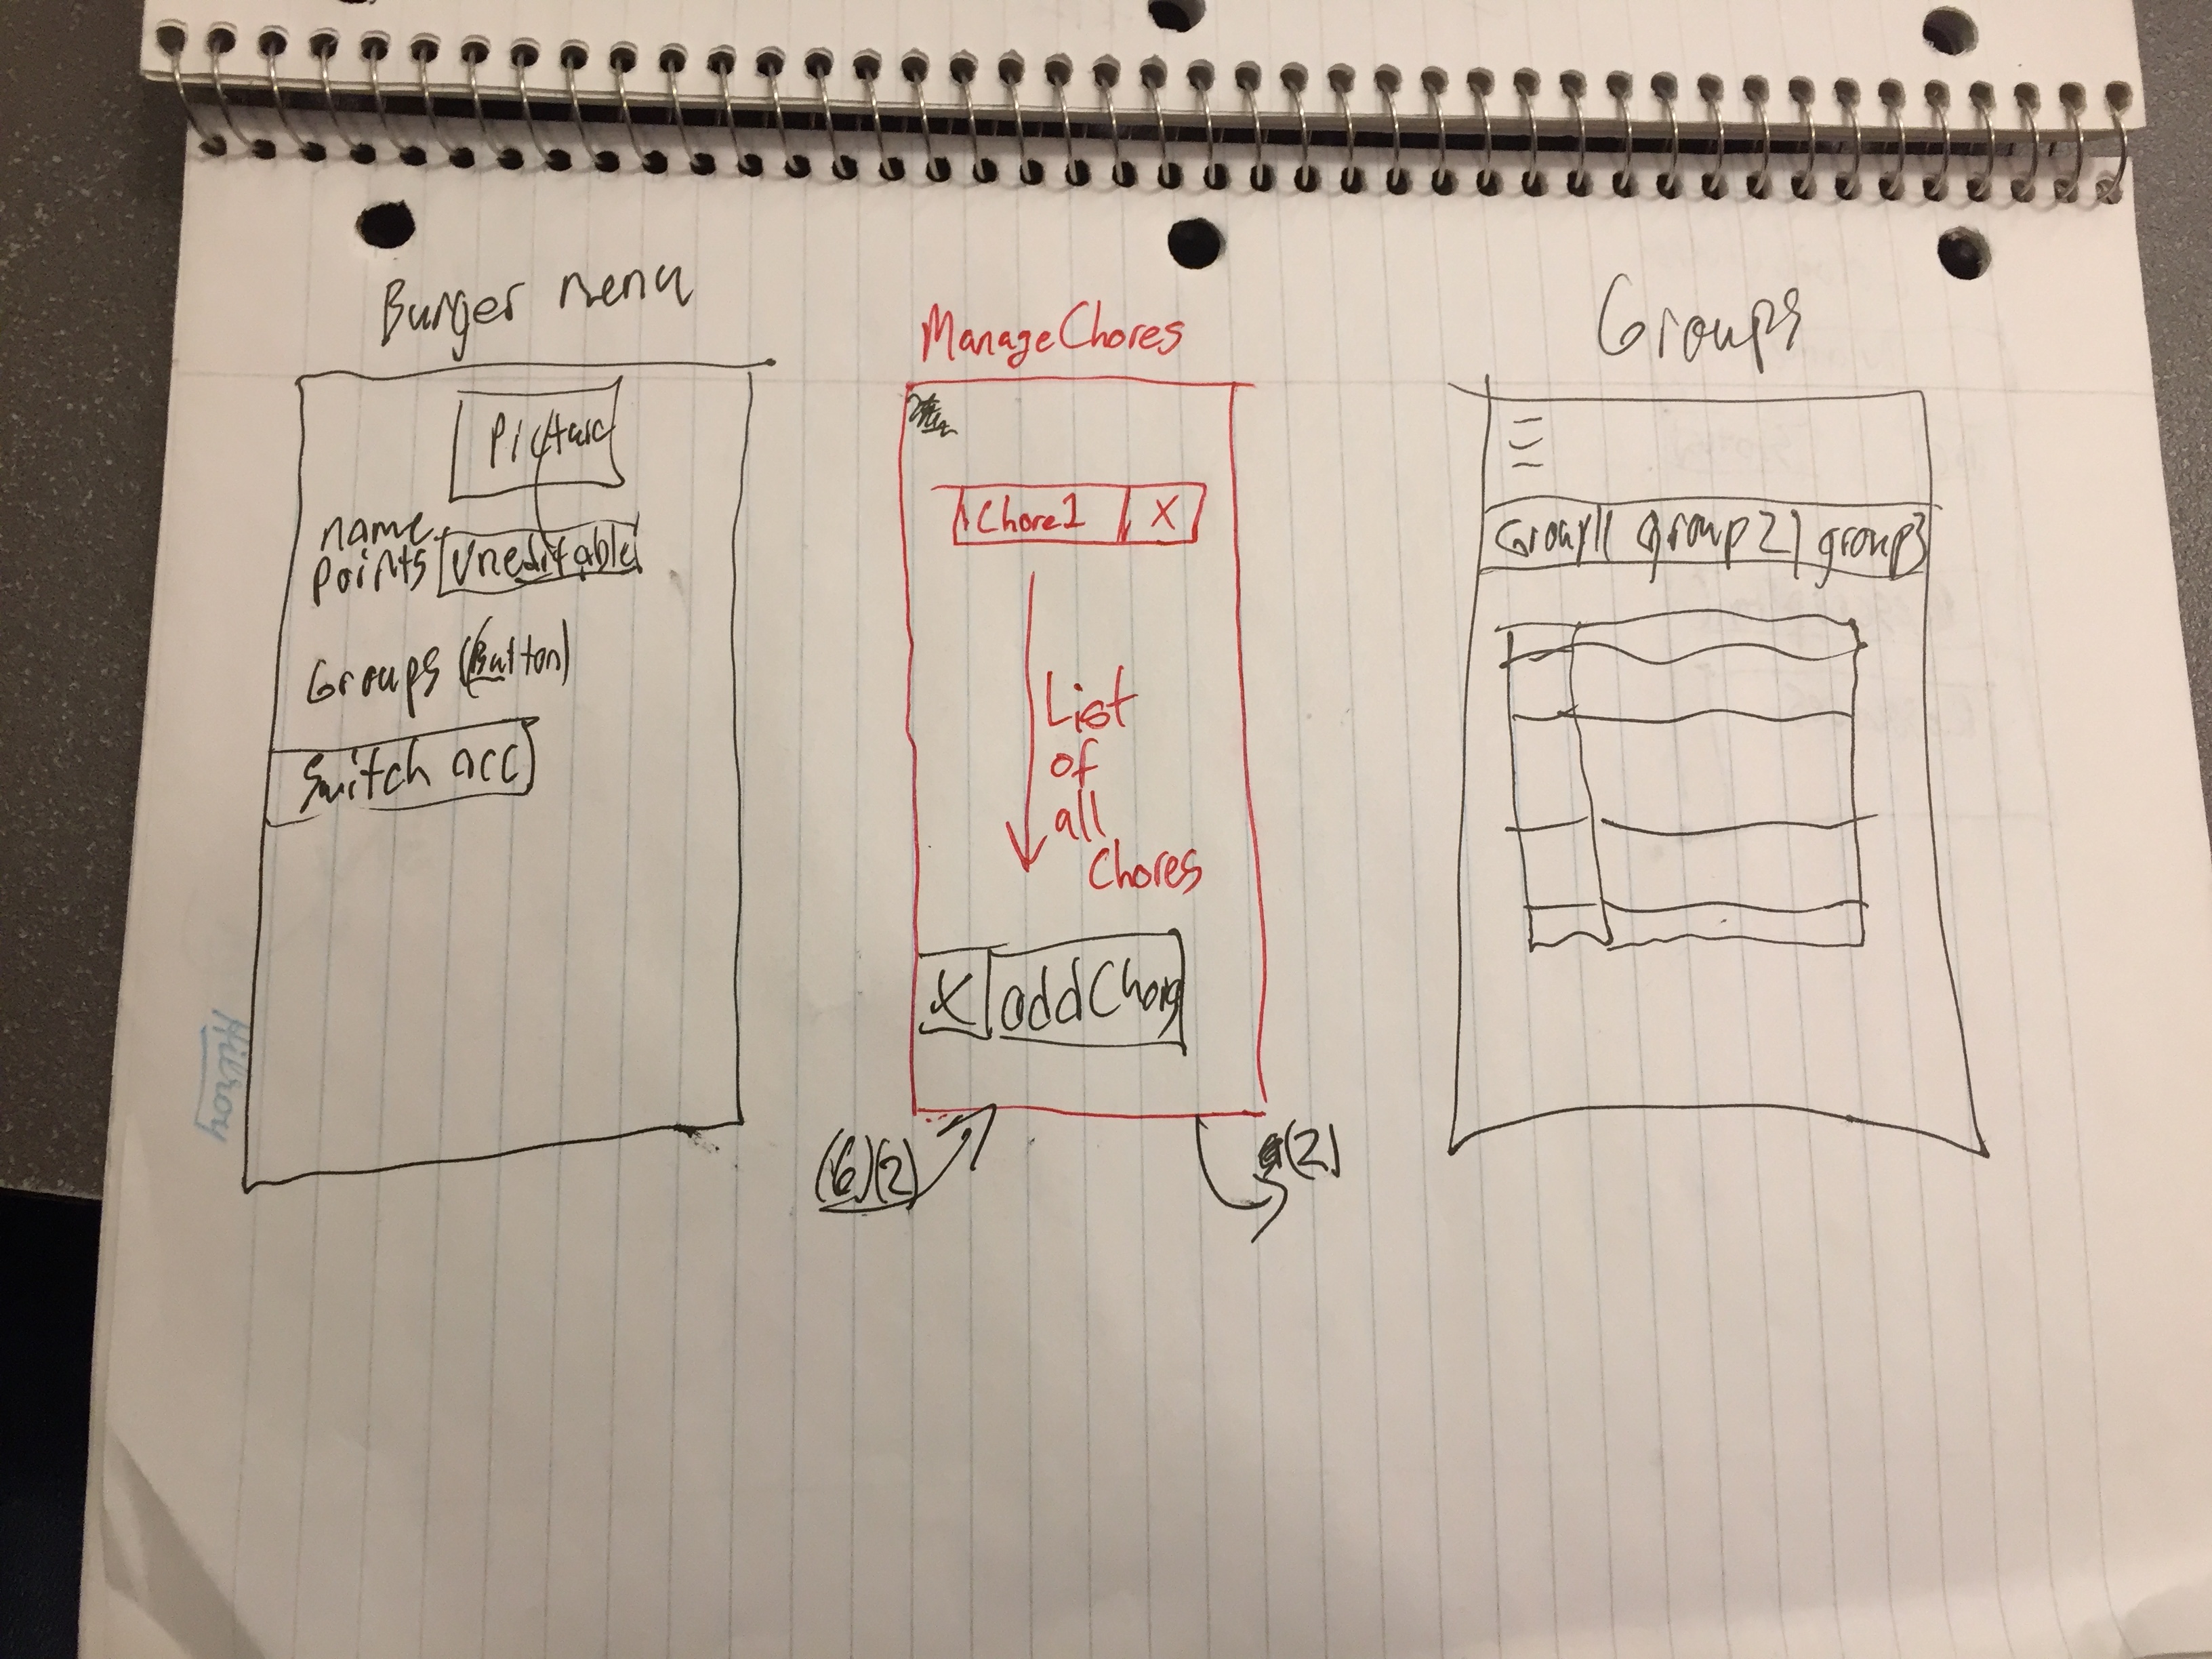 Burger menu
Picture
name,
points Uneditable
Groups (Button)
Switch acc
Manage Chores
Chore1 X
List
of
all
Chores
X add Chore
(6)(2)
(2)
Groups
Group1 group2 group3
Hilroy